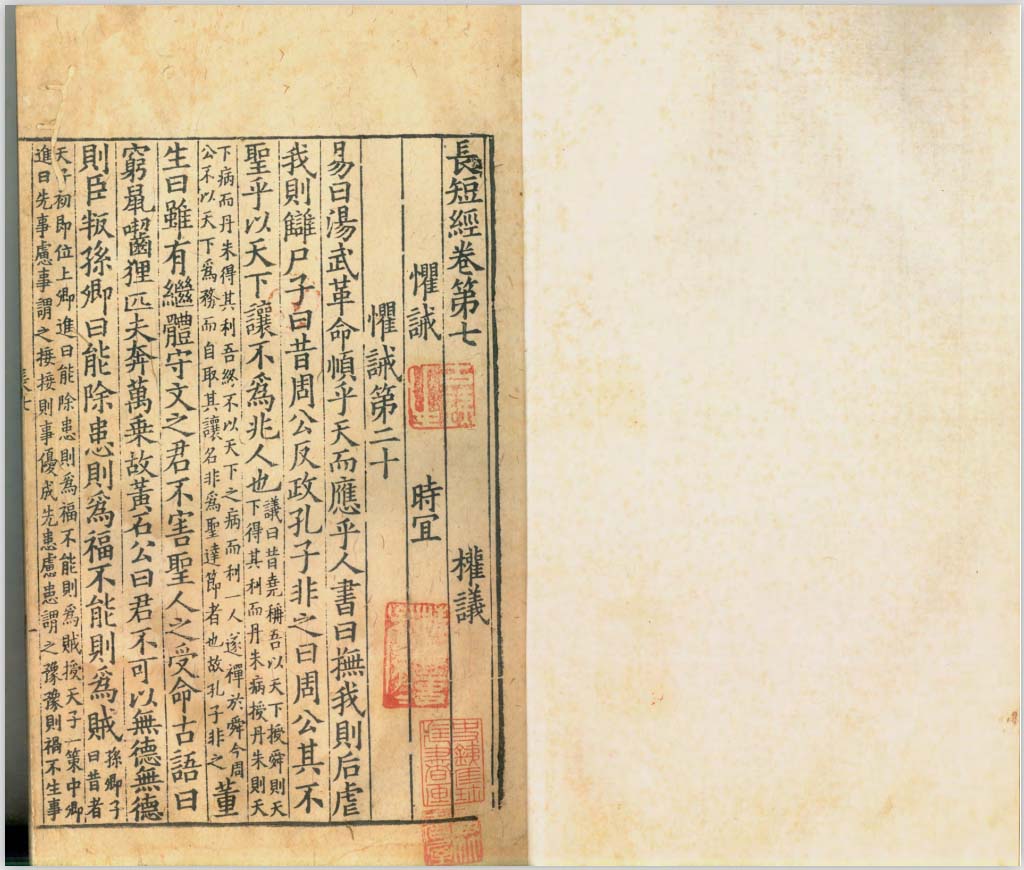 長短經卷第七 權議
懼誡 時冝
懼誡第二十
易曰湯武革命順乎天而應乎人書曰撫我則后虐
我則讎尸子曰昔周公反政孔子非之曰周公其不
聖乎以天下讓不爲兆人也
議曰昔堯稱吾以天下授舜則天
下得其利而丹朱病授丹朱則天
下病而丹朱得其利吾終不以天下之病而利一人遂禪於舜今周
公不以天下爲務而自取其讓名非爲聖達節者也故孔子非之
董
生曰雖有繼體守文之君不害聖人之受命古語曰
窮鼠嚙狸匹夫奔萬乗故黃石公曰君不可以無德無德
則臣叛孫卿曰能除患則爲福不能則爲賊
孫卿子
曰昔者
天子初即位上卿進曰能除患則爲福不能則爲賊授天子一策中卿
進曰先事慮事謂之接接則事優成先患慮患謂之豫豫則禍不生事
長七